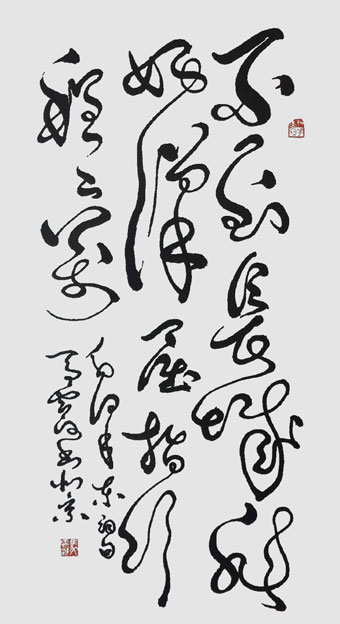 不到長城非
好漢屈指行
程二萬
毛澤東詞句